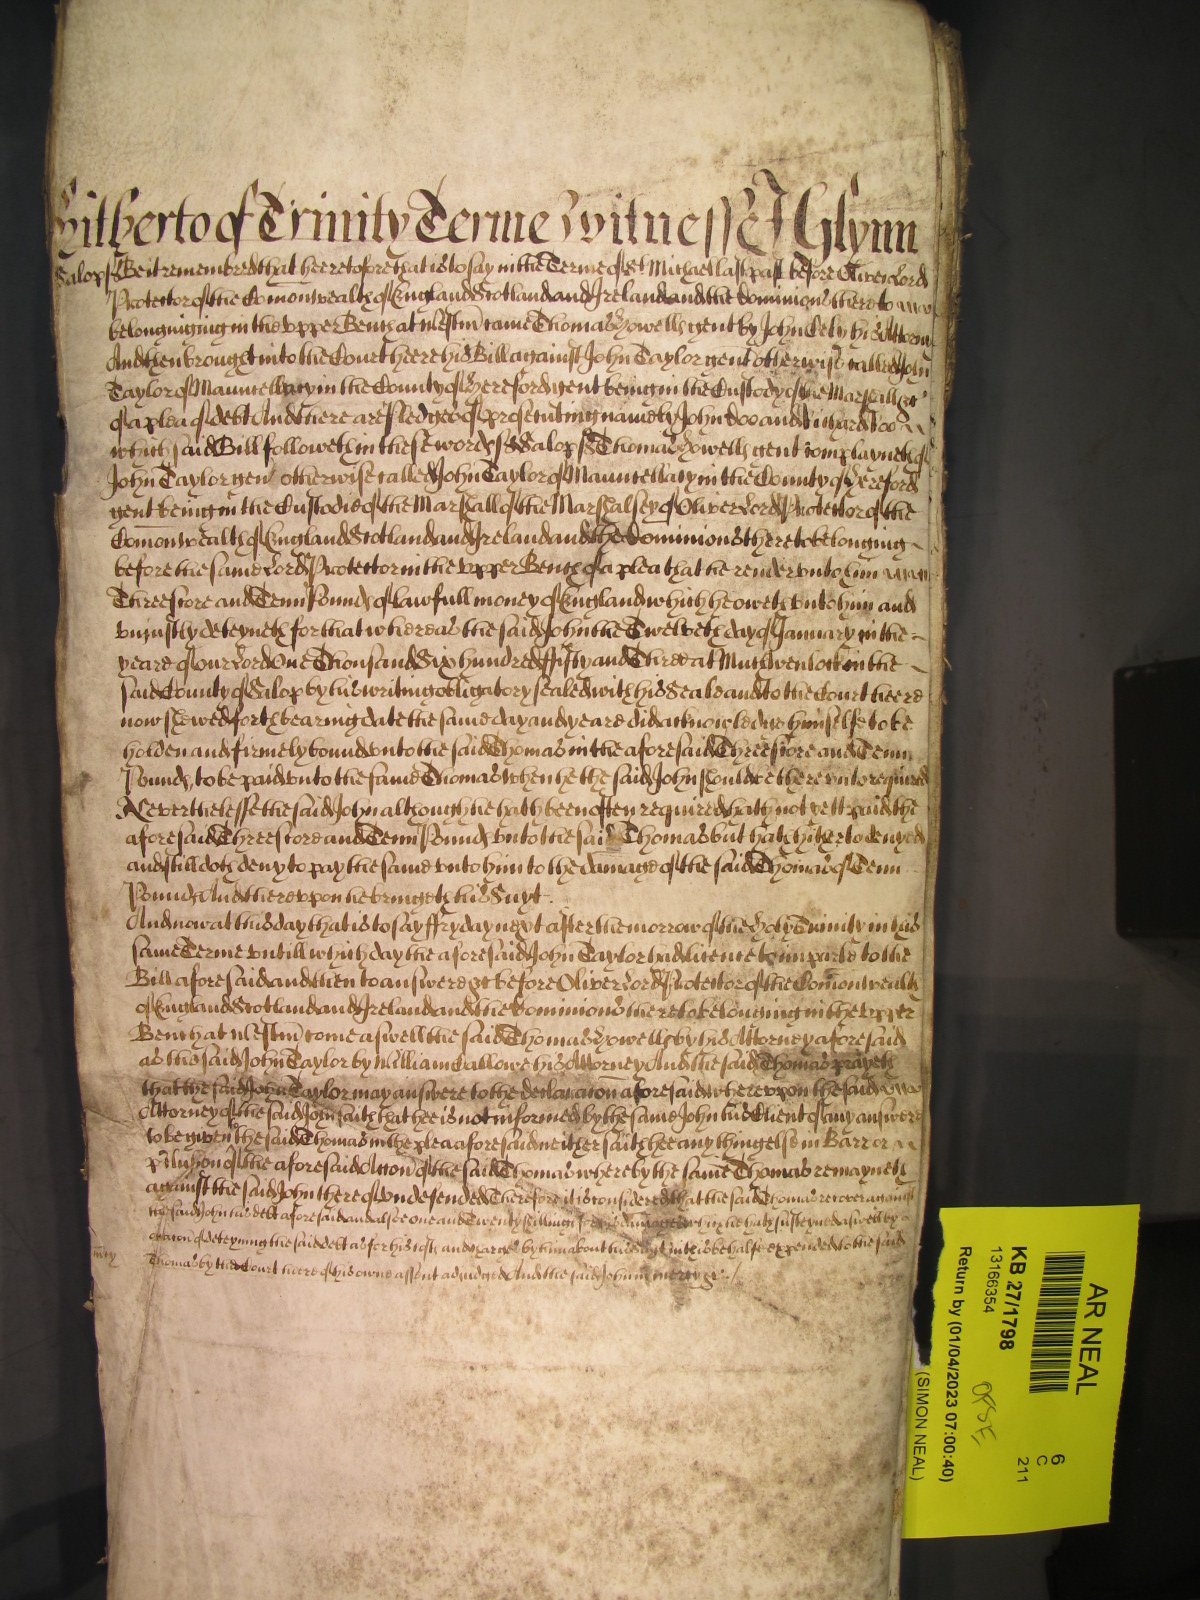 Hitherto of Trinity Terme Witnesse J Glynn
Salop ss Be it remembred that heeretofore that is to say in the Terme of St Michael last past before Oliver Lord
Protector of the Comonwealth of England Scotland and Ireland and the Dominions thereto
belonginging in the upper Bench at Westm came Thomas Howells gent by John Cely his Attorny
And then brought into the Court heere his Bill against John Taylor gent otherwise called John
Taylor of Mauncellacy in the County of Hereford gent being in the Custody of the Marshall &c
of a plea of debt And there are Pledges of prosecuting namely John Doo and Richard Roo
which said Bill followeth in these words ss Salop ss Thomas Howells gent complayneth of
John Taylor gen otherwise called John Taylor of Mauncellacy in the County of Hereford
gent being in the Custodie of the Marshall of the Marshalsey of Oliver Lord Protector of the
Comonwealth of England Scotland and Ireland and the Dominions thereto belonging
before the same Lord Protector in the upper Bench of a plea that he render unto him
Threescore and Tenn Pounds of lawfull money of England which he oweth unto him and
uniustly deteyneth for that whereas the said John the Twelveth day of January in the
yeare of our Lord One Thousand Six hundred fifty and Three at Much Wenlock in the
said County of Salop by his writing obligatory sealed with his Seale and to the Court heere
now shewed forth bearing date the same day and yeare did acknowledge himselfe to be
holden and firmely bound unto the said Thomas in the aforesaid Threescore and Tenn
Pounds to be paid unto the same Thomas when he the said John should be thereunto required
Neverthelesse the said John although he hath been often required hath not yett paid the
aforesaid Threescore and Tenn Pounds unto the said Thomas but hath hitherto denyed
and still doth deny to pay the same unto him to the damage of the said Thomas of Tenn
Pounds And thereupon he bringeth his Suyt
And now at this day that is to say ffryday next after the morrow of the Holy Trinity in this
same Terme untill which day the aforesaid John Taylor had licence to imparle to the
Bill aforesaid and then to answere &c before Oliver Lord Protector of the Comonwealth
of England Scotland and Ireland and the Dominions thereto belonging in the upper
Bench at Westm come aswell the said Thomas Howells by his Attorney aforesaid
as the said John Taylor by William Callowe his Attorney And the said Thomas prayeth
that the said John Taylor may answere to the declaracon aforesaid whereupon the said
Attorney of the said John saith that hee is not informed by the same John his Client of any answere
to be given the said Thomas in the plea aforesaid neither saith hee any thing else in Barr or
p'clusion of the aforesaid Accon of the said Thomas whereby the same Thomas remayneth
against the said John thereof undefended Therefore it is considered that the said Thomas recover against
the said John his debt aforesaid and alsoe one and Twenty shillings for his damages which he hath susteyned aswell by
occacon of deteyning the said debt as for his costs and charges by him about his suyt in this behalfe expended to the said
mercy
Thomas by the Court heere of his owne assent adiudged And the said John in mercy &c
AR NEAL
KB 27/1798
13166354
Return by (01/04/2023 07:00:40)
(SIMON NEAL)
6
C
211